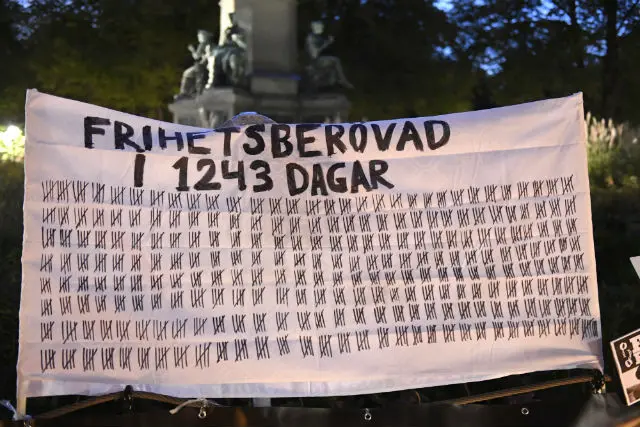 FRIHETSBERÖVAD
I 1243 DAGAR